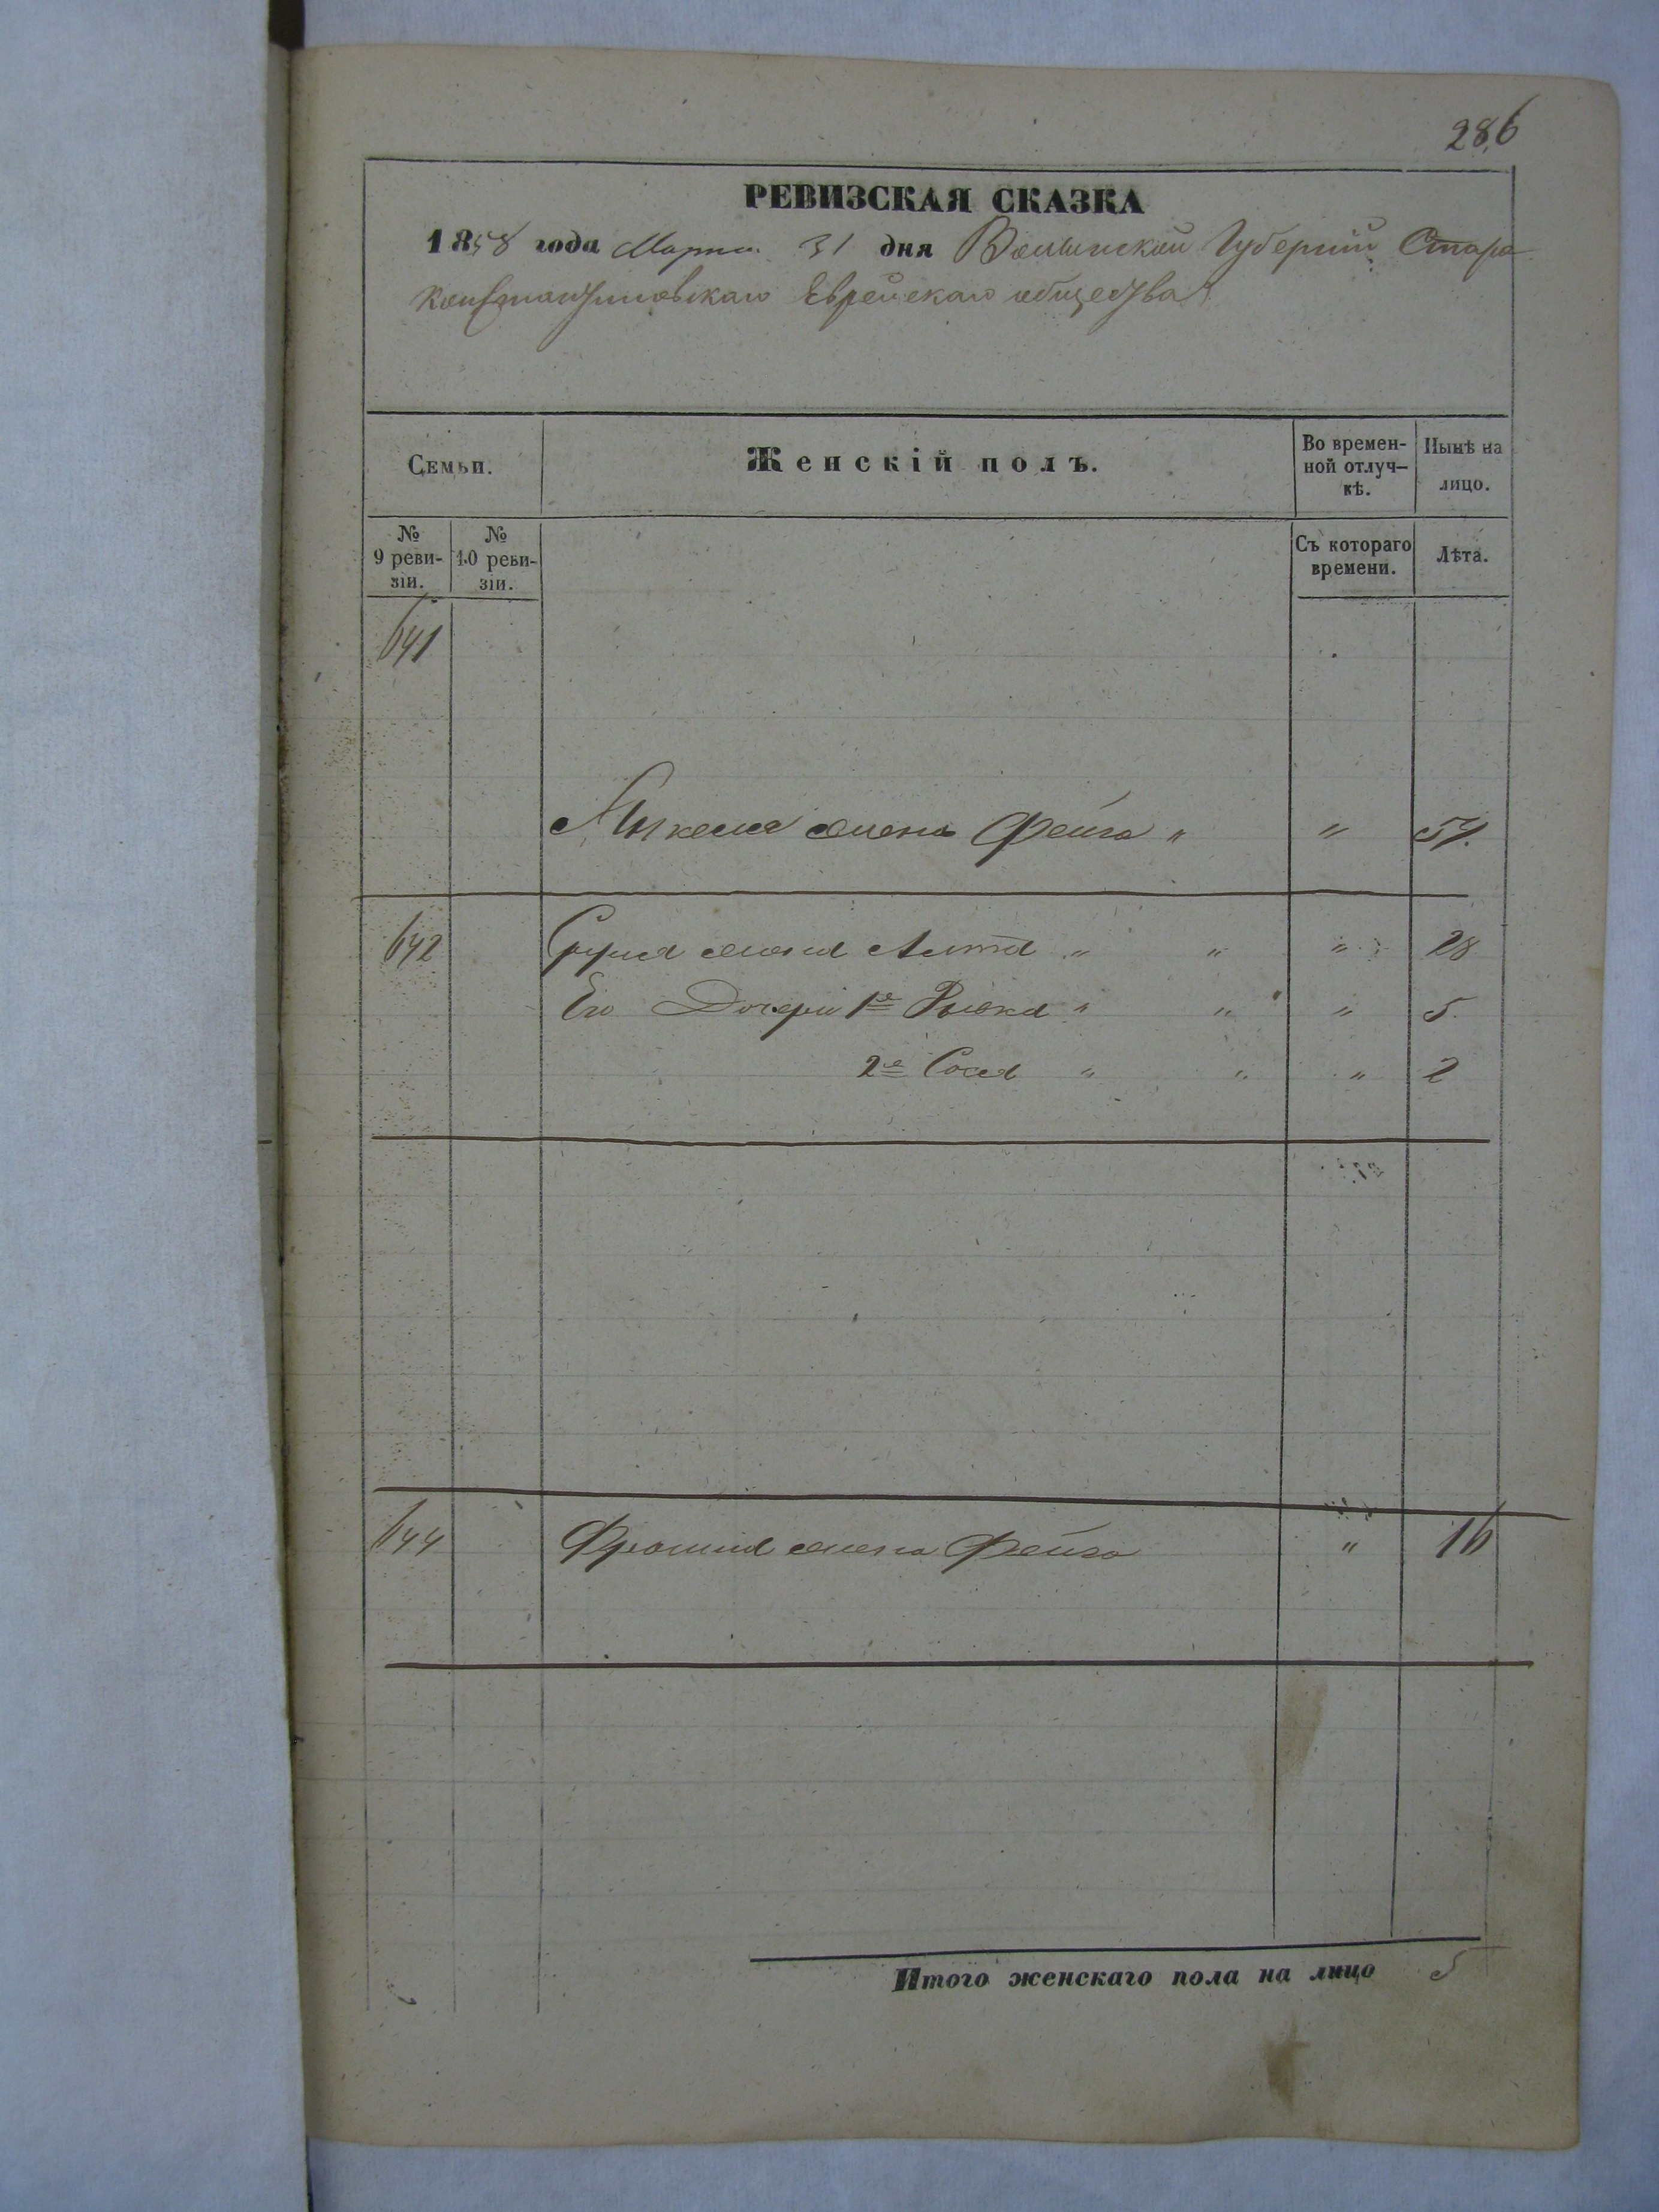 286
РЕВИЗСКАЯ СКАЗКА
1858 года Марта 31 дня Волынской Губернии Старо
константиновскаго Еврейскаго общества
Семьи.
Женскій полъ.
Во времен-
ной отлуч-
кѣ.
Нынѣ на
лицо.
№
9 реви-
зіи.
№
10 реви-
зіи.
Съ котораго
времени.
Лѣта.
641
жена Фейга " "
642 жена " " " 28
Его Дочери 1е Рывка " " " 5
2е Сося " " " 2
644 жена Фейга " 16
Итого женскаго пола на лицо 5